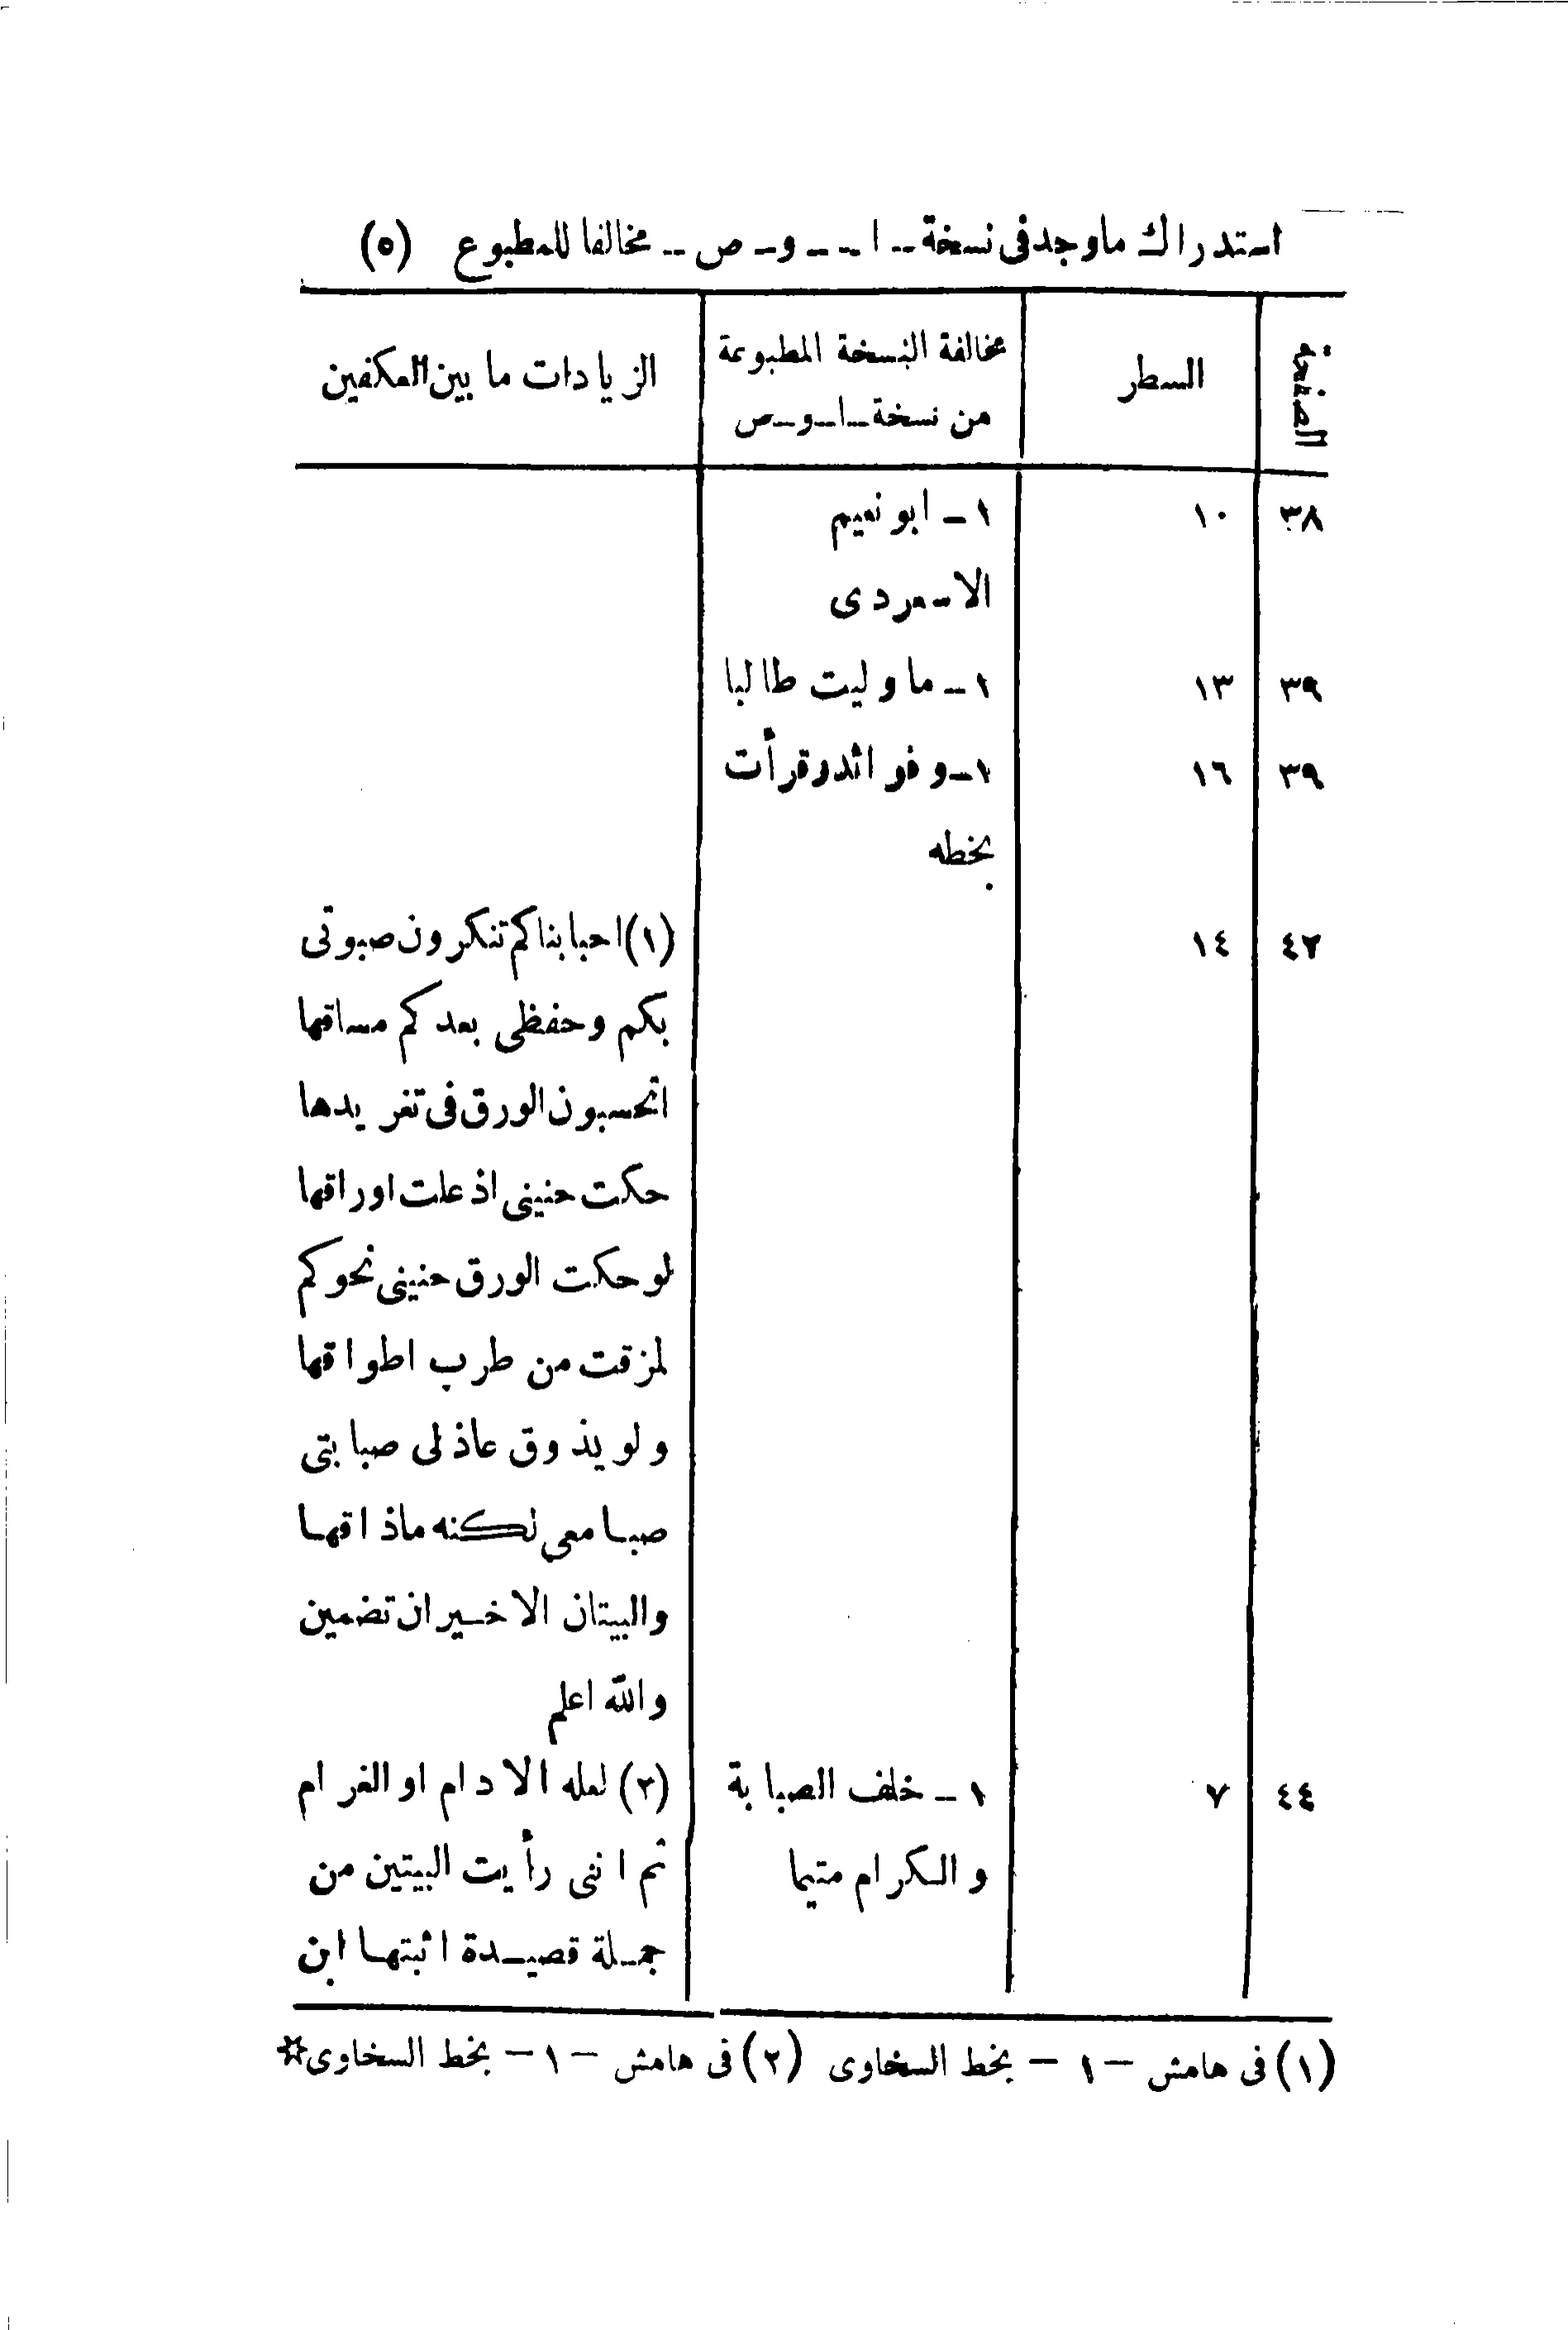 استدراك ماوجد فى نسخة -- ا -- و- ص -- مخالفا للمطبوع (٥)
الصفحة السطر مخالفة النسخة المطبوعة الزيادات ما بين العكفين
من نسخة-ا-و-ص
٣٨ ١٠ ١ - ابو نعيم
الاسعردى
٣٩ ١٣ ١- ما وليت طالبا
٣٩ ١٦ ١-وفوائدوقرأت
بخطه
٤٢ ١٤ (١) احبابنا كم تنكرون صبوتى
بكم وحفظى بعدكم مساقها
اتحسبون الورق فى تغريدها
حكت حنينى اذ علت اوراقها
لو حكت الورق حنينى نحوكم
لمزقت من طرب اطواقها
ولو يذوق عاذلى صبابتى
صبا معى لكنه ماذاقها
والبيتان الاخيران تضمين
والله اعلم
٤٤ ٧ ١ - خلف الصبابة (٢) لعله الادام او الغرام
والكرام متيما ثم اننى رأيت البيتين من
جملة قصيدة اثبتها ابن
(١) فى هامش - ١ - بخط السخاوى (٢) فى هامش - ١ - بخط السخاوى*